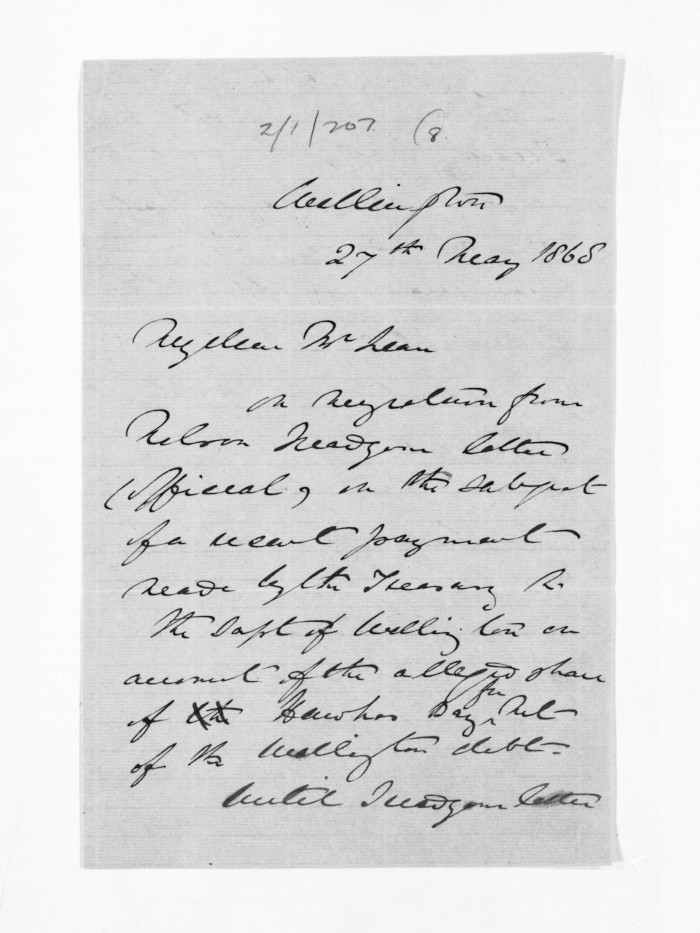 2/1/207. (8.
Wellington
27th May 1868
My dear Mr Lean
on my return from
Nelson I read your letter
(official) on the subject
of a recent payment
made by the Treasury to
the Supt of Wellington on
account of the alleged share
of Hawkes Bay for Int
of the Wellington debt -
Until I read your letter